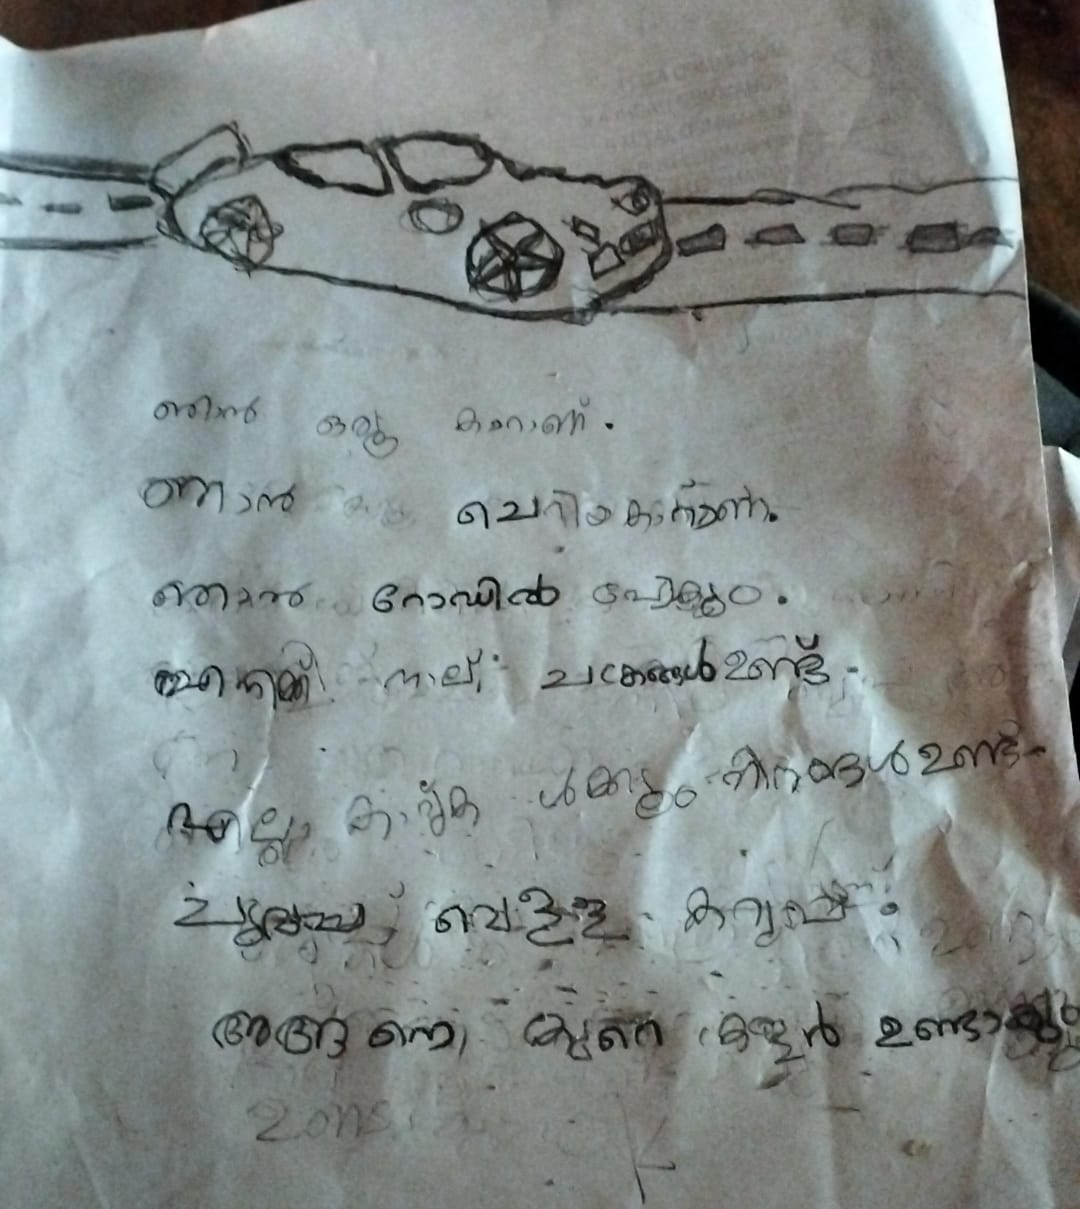 ഞാൻ ഒരു കാറാണ്.
ഞാൻ ചെറിയകാറാണ്.
ഞാൻ റോഡിൽ പോകും.
എനിക്ക് നാല് ചക്രങ്ങൾ ഉണ്ട്.
എല്ലാ കാറുക ൾക്കും നിറങ്ങൾ ഉണ്ട്
ചുവപ്പ്, വെള്ള കറുപ്പ്.
അങ്ങനെ, കുറെ കളർ ഉണ്ടാകും